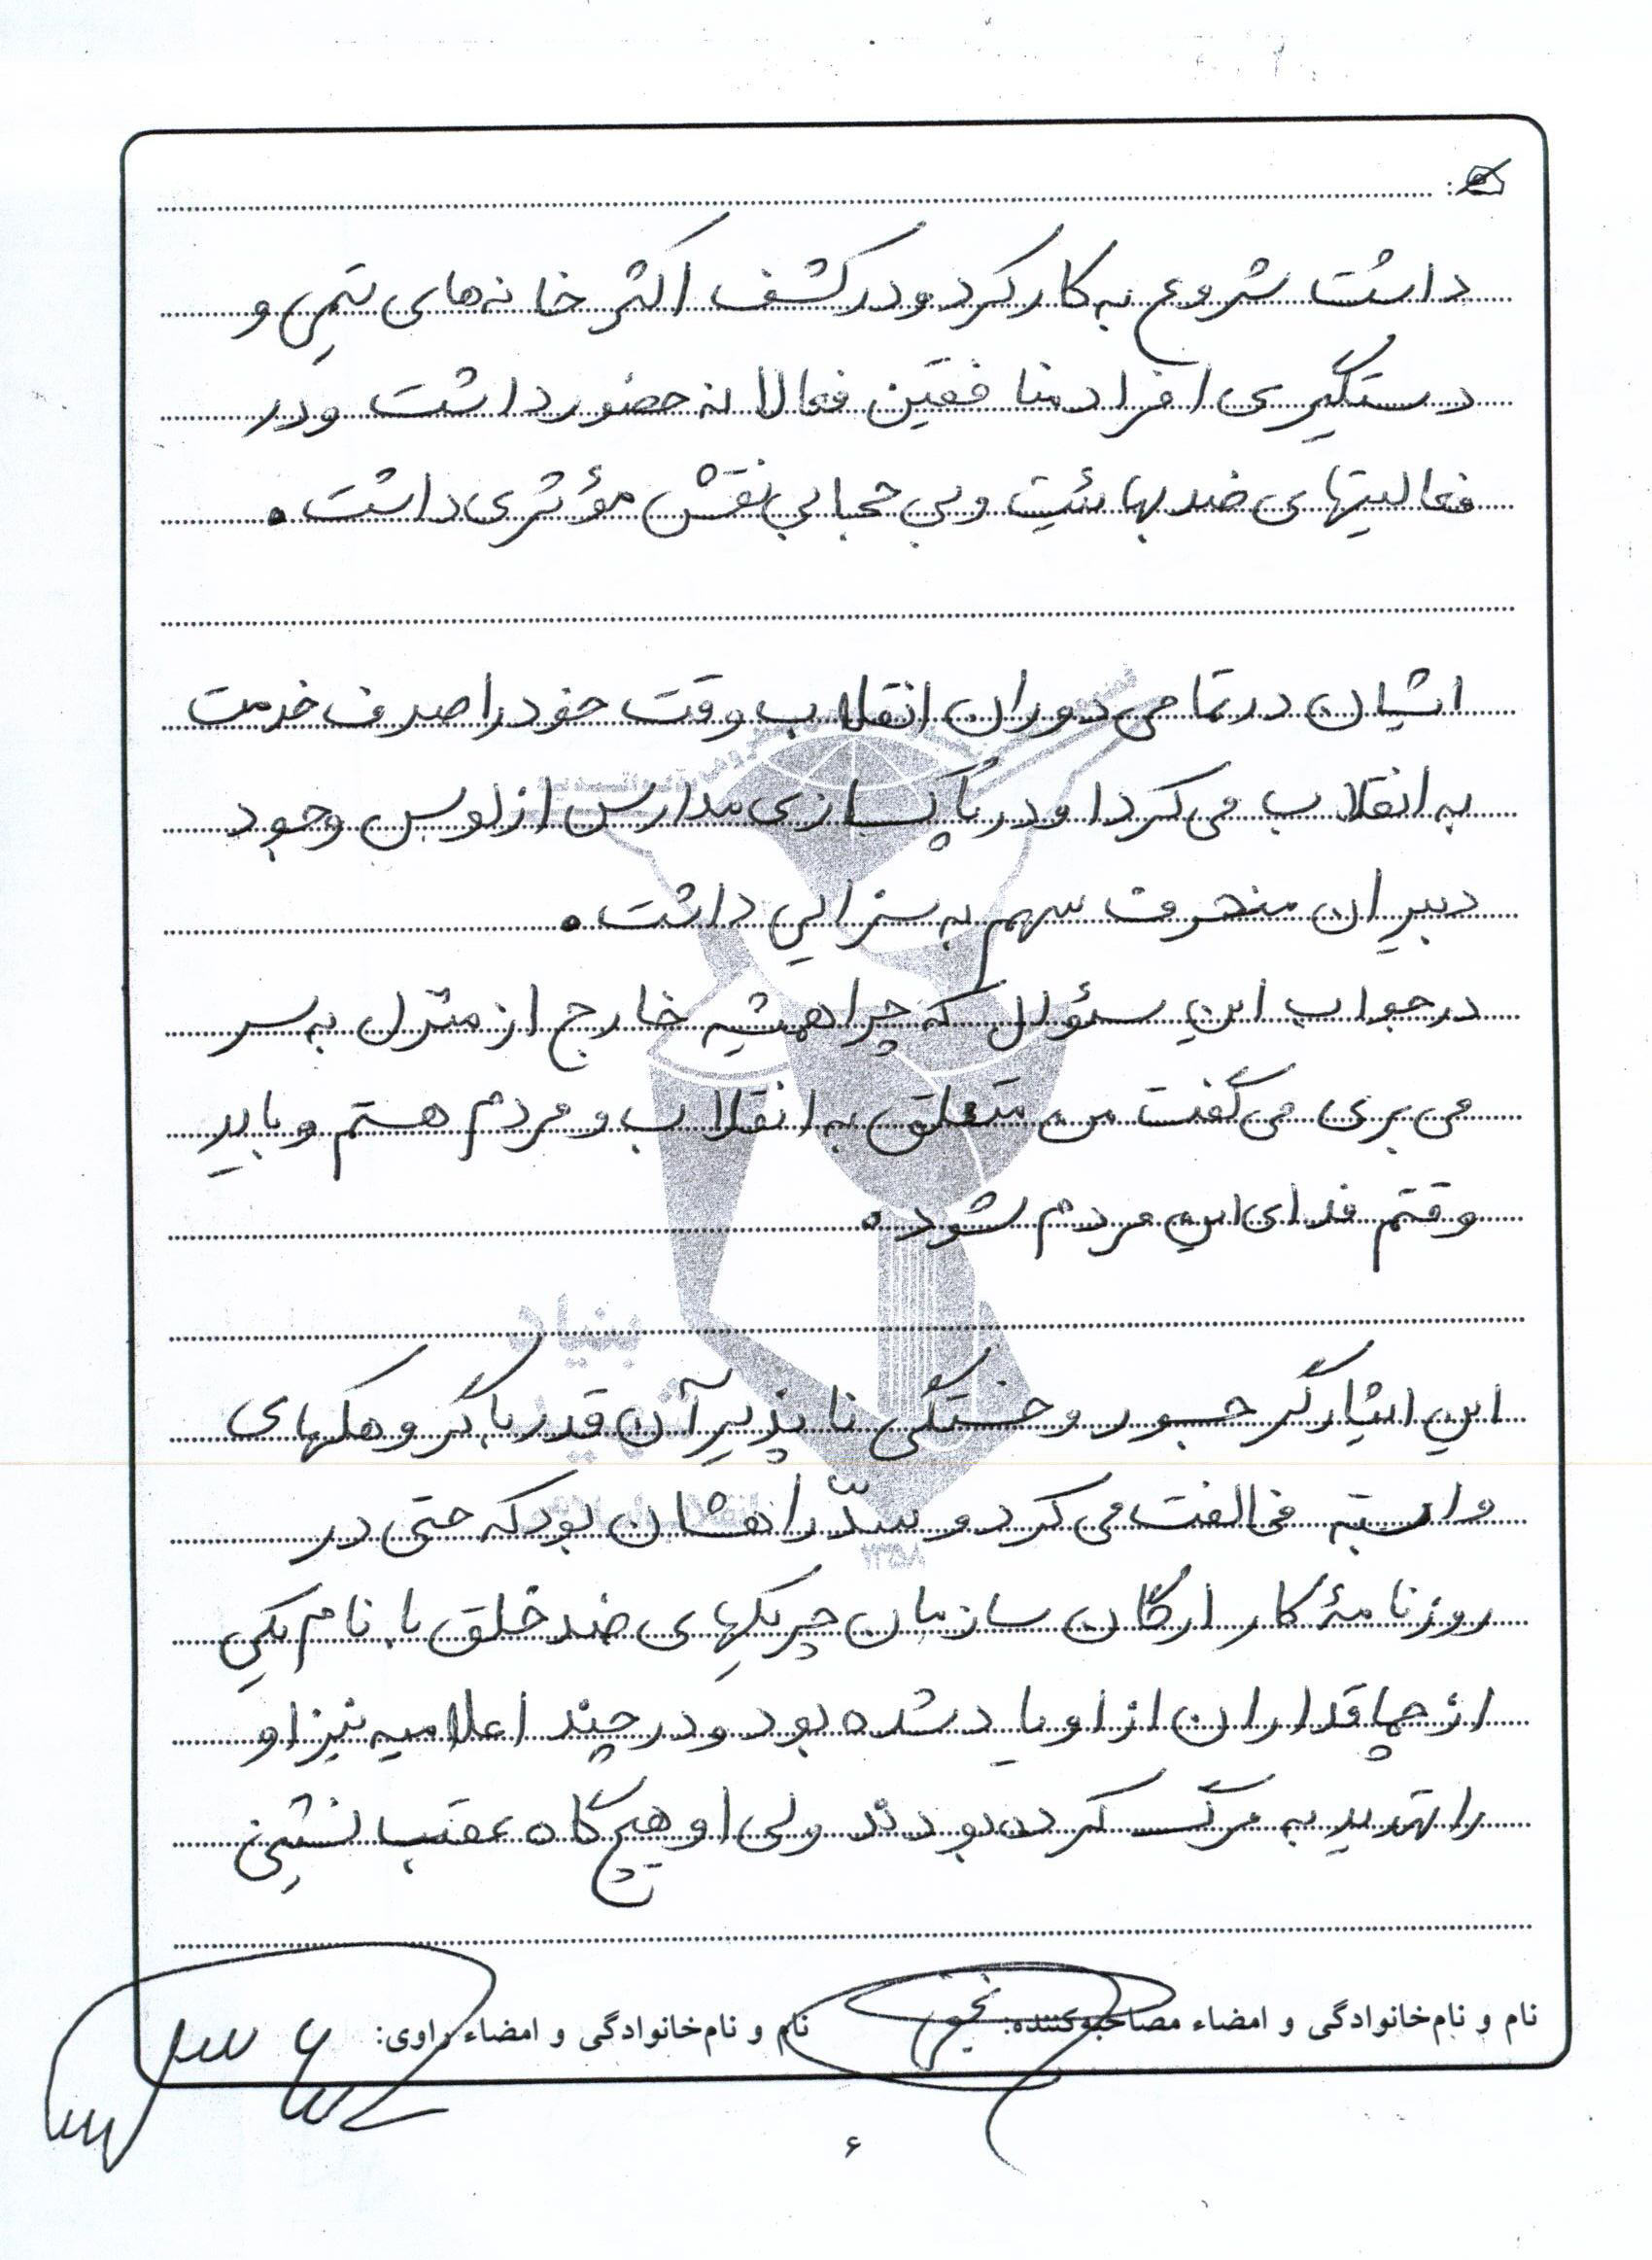 داشت شروع به کار کرد و در کشف اکثر خانه‌های تیمی و
دستگیری افراد منافقین فعالانه حضور داشت و در
فعالیتهای ضد بهائیت و بی حجابی نقش مؤثری داشت.
ایشان در تمامی دوران انقلاب وقت خود را صرف خدمت
به انقلاب می‌کرد او در پاکسازی مدارس از لوس وجود
دبیران منحرف سهم به سزایی داشت.
در جواب این سئوال که چرا همیشه خارج از منزل به سر
می بری می گفت من متعلق به انقلاب و مردم هستم و باید
وقتم فدای این مردم شود.
این ایثارگر جسور و خستگی ناپذیر آن قدر با گروهکهای
وابسته مخالفت می کرد و سدّ راهشان بود که حتی در
روزنامهٔ کار ارگان سازمان چریکهای ضد خلق با نام یکی
از چماقداران از او یاد شده بود و در چند اعلامیه نیز او
را تهدید به مرگ کرده بودند ولی او هیچ گاه عقب نشینی
نام و نام‌خانوادگی و امضاء مصاحبه‌کننده: نام و نام‌خانوادگی و امضاء راوی:
۶
بنیاد